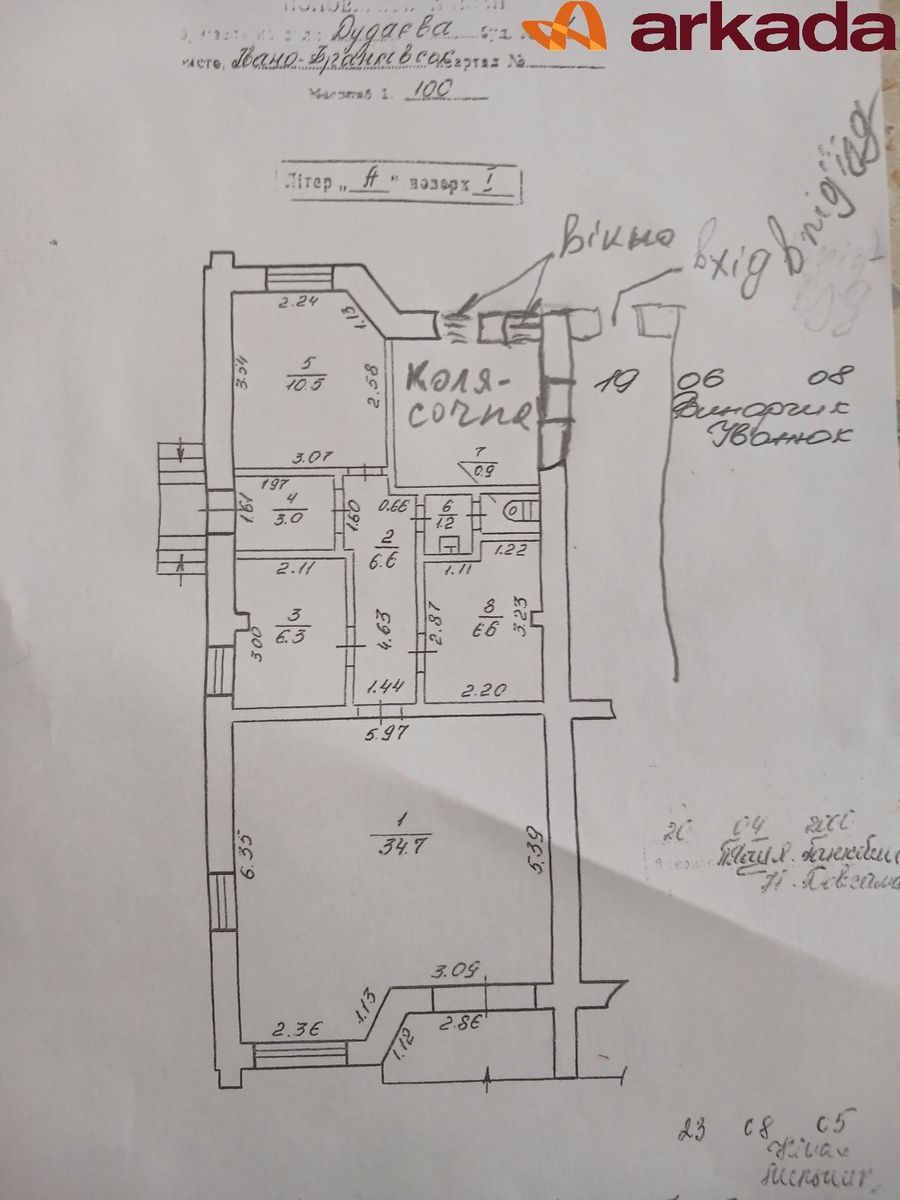 arkada
Дудаєва
місто, Івано-Франківськ квартал №
Масштаб 1: 100
Літер „А“ поверх I
Вікна
вхід в під'їзд
2.24
1.13
3.54
5
10.5
2.58
Коля-
сочна
19 06 08
3.07
7
0.9
1.97
1.61
4
3.0
1.60
0.66
6
1.2
2
6.6
2.11
1.11
1.22
3
6.3
3.00
4.63
2.87
8
6.6
3.23
1.44
2.20
5.97
1
34.7
6.35
5.39
3.09
1.13
2.36
2.86
1.12
23 08 05